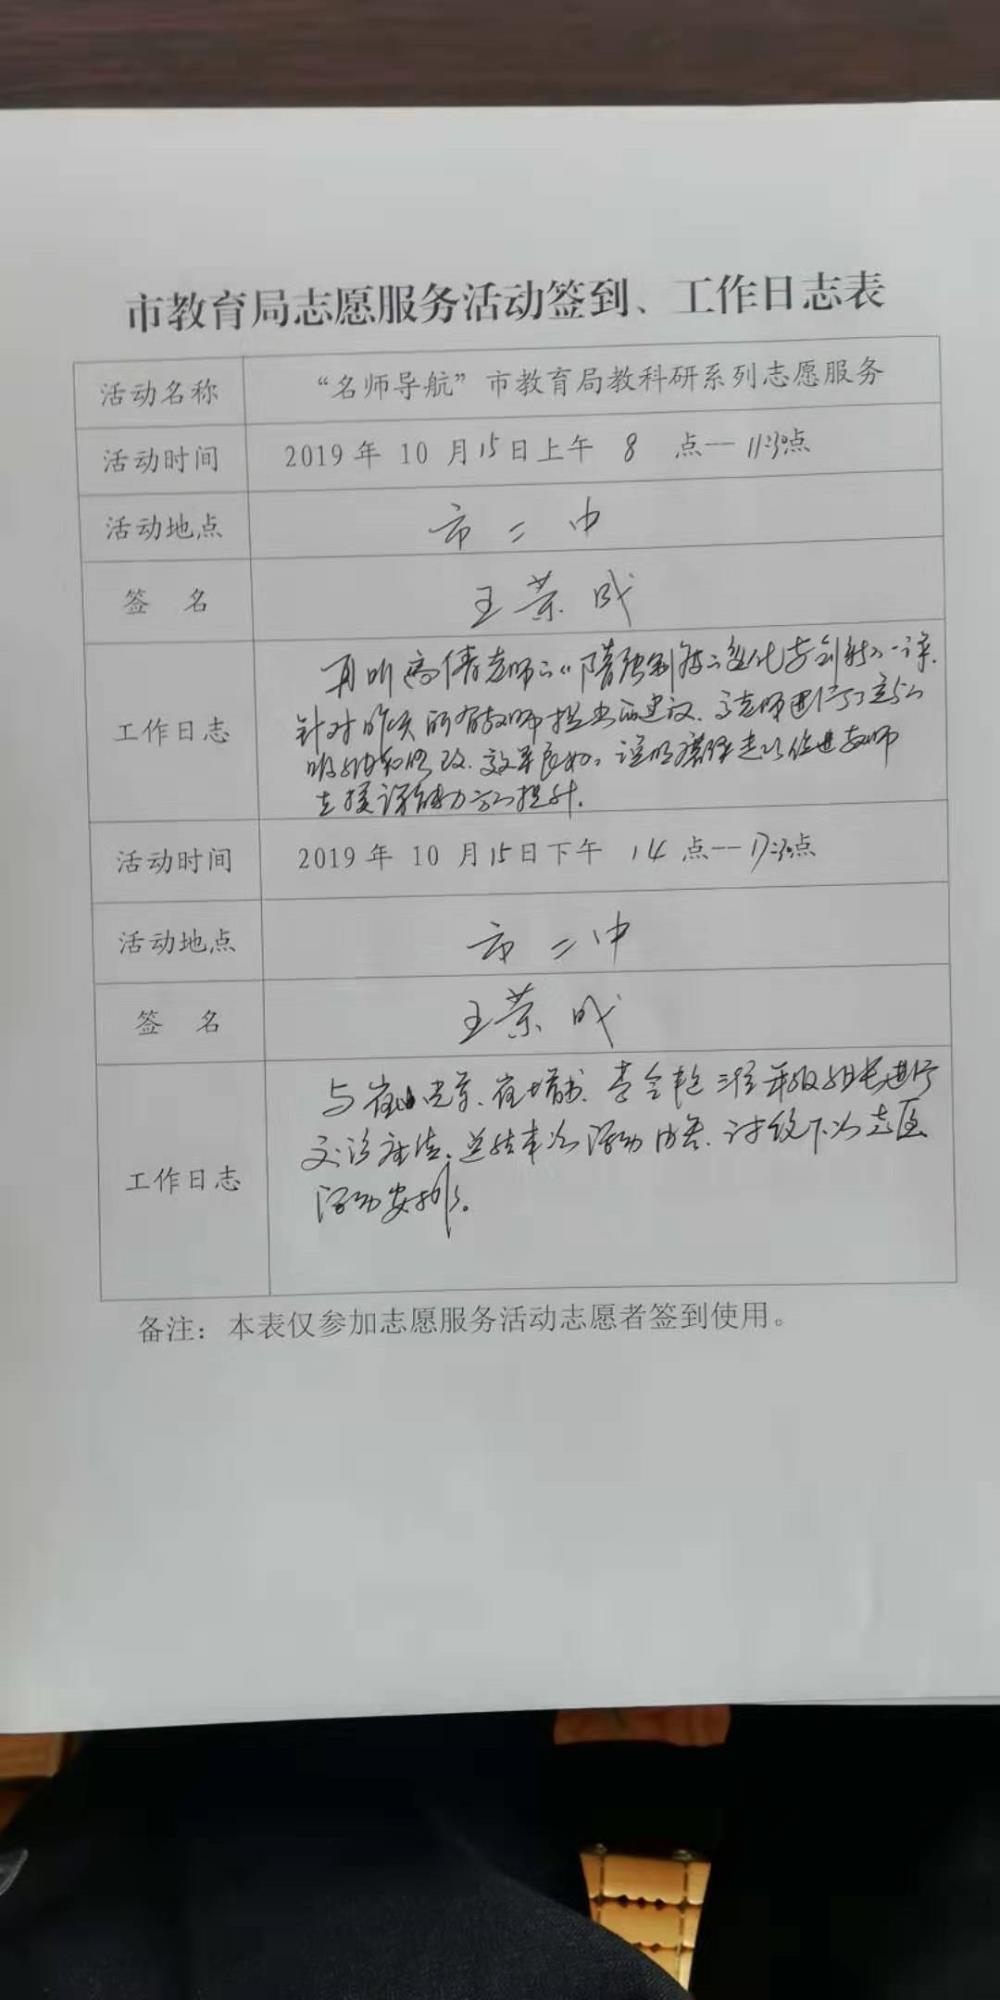 市教育局志愿服务活动签到、工作日志表
活动名称 “名师导航”市教育局教科研系列志愿服务
活动时间 2019年 10 月15日上午 8 点—11:30点
活动地点 市二中
签 名 王荣成
工作日志 再听高倩老师的《隋唐制度的变化与创新》一课.
针对昨天所有教师提出的建议.高老师进行了充分的
吸纳和修改.效果良好。说明磨课是可以促进教师
授课能力的提升.
活动时间 2019年 10 月15日下午 14 点—17:30点
活动地点 市二中
签 名 王荣成
工作日志 与崔 三位年级组长进行
交谈座谈.总结本次活动内容.讨论下次志愿
活动安排。
备注：本表仅参加志愿服务活动志愿者签到使用。